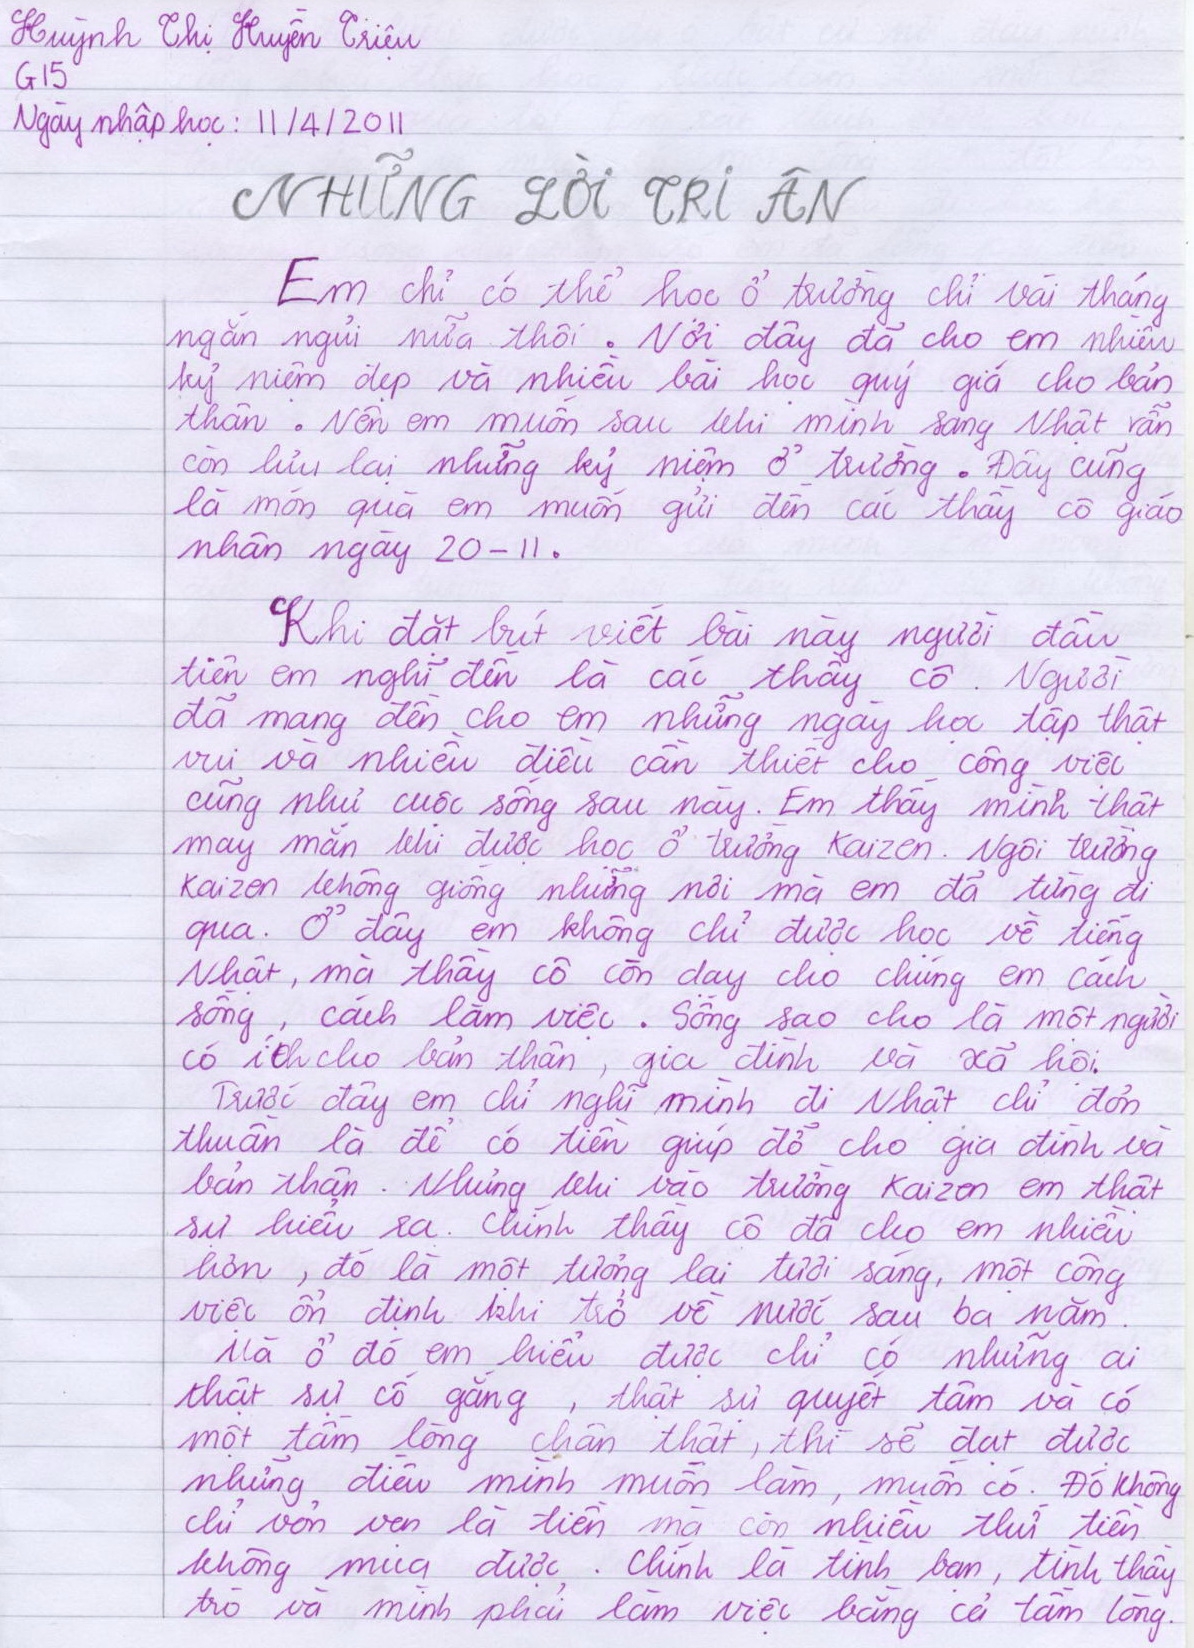 Huỳnh Thị Huyền Triệu
G15
Ngày nhập học: 11/4/2011
NHỮNG LỜI TRI ÂN
Em chỉ có thể học ở trường chỉ vài tháng
ngắn ngủi nữa thôi. Nơi đây đã cho em nhiều
kỷ niệm đẹp và nhiều bài học quý giá cho bản
thân. Nên em muốn sau khi mình sang Nhật vẫn
còn lưu lại những kỷ niệm ở trường. Đây cũng
là món quà em muốn gửi đến các thầy cô giáo
nhân ngày 20-11.
Khi đặt bút viết bài này người đầu
tiên em nghĩ đến là các thầy cô. Người
đã mang đến cho em những ngày học tập thật
vui và nhiều điều cần thiết cho công việc
cũng như cuộc sống sau này. Em thấy mình thật
may mắn khi được học ở trường Kaizen. Ngôi trường
Kaizen không giống những nơi mà em đã từng đi
qua. Ở đây em không chỉ được học về tiếng
Nhật, mà thầy cô còn dạy cho chúng em cách
sống, cách làm việc. Sống sao cho là một người
có ích cho bản thân, gia đình và xã hội.
Trước đây em chỉ nghĩ mình đi Nhật chỉ đơn
thuần là để có tiền giúp đỡ cho gia đình và
bản thân. Nhưng khi vào trường Kaizen em thật
sự hiểu ra. Chính thầy cô đã cho em nhiều
hơn, đó là một tương lai tươi sáng, một công
việc ổn định khi trở về nước sau ba năm.
Mà ở đó em hiểu được chỉ có những ai
thật sự cố gắng, thật sự quyết tâm và có
một tấm lòng chân thật, thì sẽ đạt được
những điều mình muốn làm, muốn có. Đó không
chỉ vỏn vẹn là tiền mà còn nhiều thứ tiền
không mua được. Chính là tình bạn, tình thầy
trò và mình phải làm việc bằng cả tấm lòng.